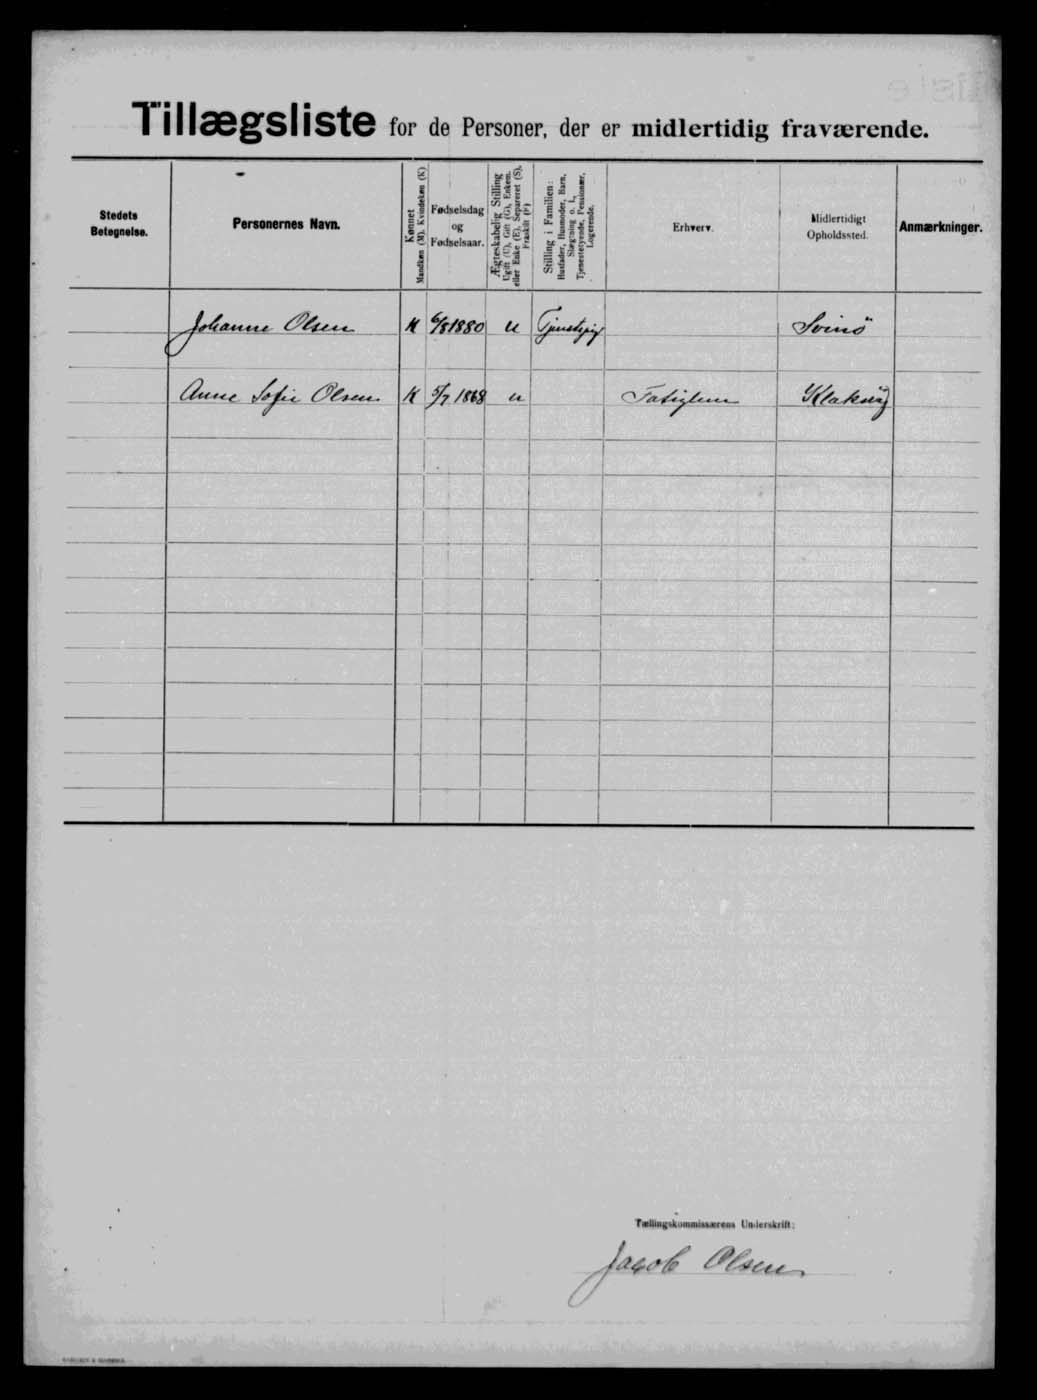 Tillægsliste for de Personer, der er midlertidig fraværende.
Stedets Betegnelse.
Personernes Navn.
Kønnet
Mandkøn (M). Kvindekøn (K)
Fødselsdag
og
Fødselsaar.
Ægteskabelig Stilling
Ugift (U), Gift (G), Enkem.
eller Enke (E), Separeret (S),
Fraskilt (F)
Stilling i Familien:
Husfader, Husmoder, Barn,
Slægtning o. l.,
Tjenestetyende, Pensionær,
Logerende.
Erhverv.
Midlertidigt
Opholdssted.
Anmærkninger.
Johanne Olsen K 6/8 1880 U Svinö
Anne Sofie Olsen K 5/7 1868 u Klaksvig
Tællingskommissærens Underskrift:
Jacob Olsen